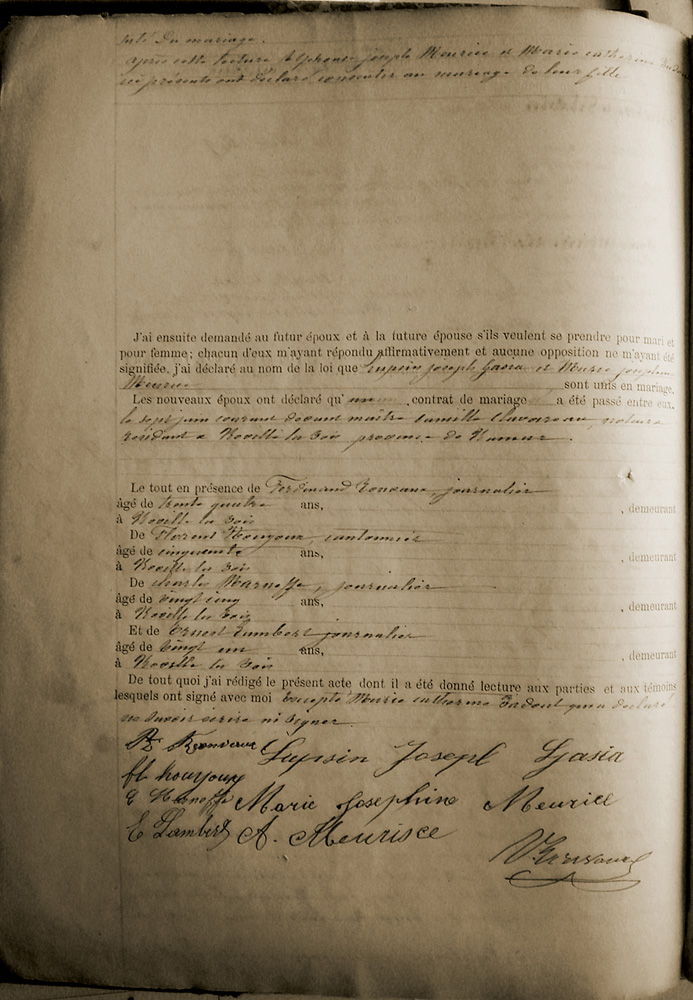 du mariage.
après cette lecture Alphonse joseph Meurice et Marie catherine
ici présents ont déclaré consentir au mariage de leur fille
J'ai ensuite demandé au futur époux et à la future épouse s'ils veulent se prendre pour mari et
pour femme; chacun d'eux m'ayant répondu affirmativement et aucune opposition ne m'ayant été
signifiée, j'ai déclaré au nom de la loi que Lupsin joseph Gasia et Marie josephine
Meurice sont unis en mariage.
Les nouveaux époux ont déclaré qu' contrat de mariage a été passé entre eux,
le sept juin courant devant maître camille notaire
résidant a Noville les bois province de Namur.
Le tout en présence de Ferdinand journalier
âgé de trente quatre ans, , demeurant
à Noville les bois
De Florent Houyoux, cantonnier
âgé de cinquante ans, , demeurant
à Noville les bois
De charles Harnoffe, journalier
âgé de vingt cinq ans, , demeurant
à Noville les bois
Et de Ernest Lambert journalier
âgé de vingt un ans, , demeurant
à Noville les bois
De tout quoi j'ai rédigé le présent acte dont il a été donné lecture aux parties et aux témoins
lesquels ont signé avec moi Excepté Marie catherine qui a déclaré
ne savoir écrire ni signer
Lupsin Joseph Gasia
fl houyoux
Marie Josephine Meurice
E Lambert A. Meurisce